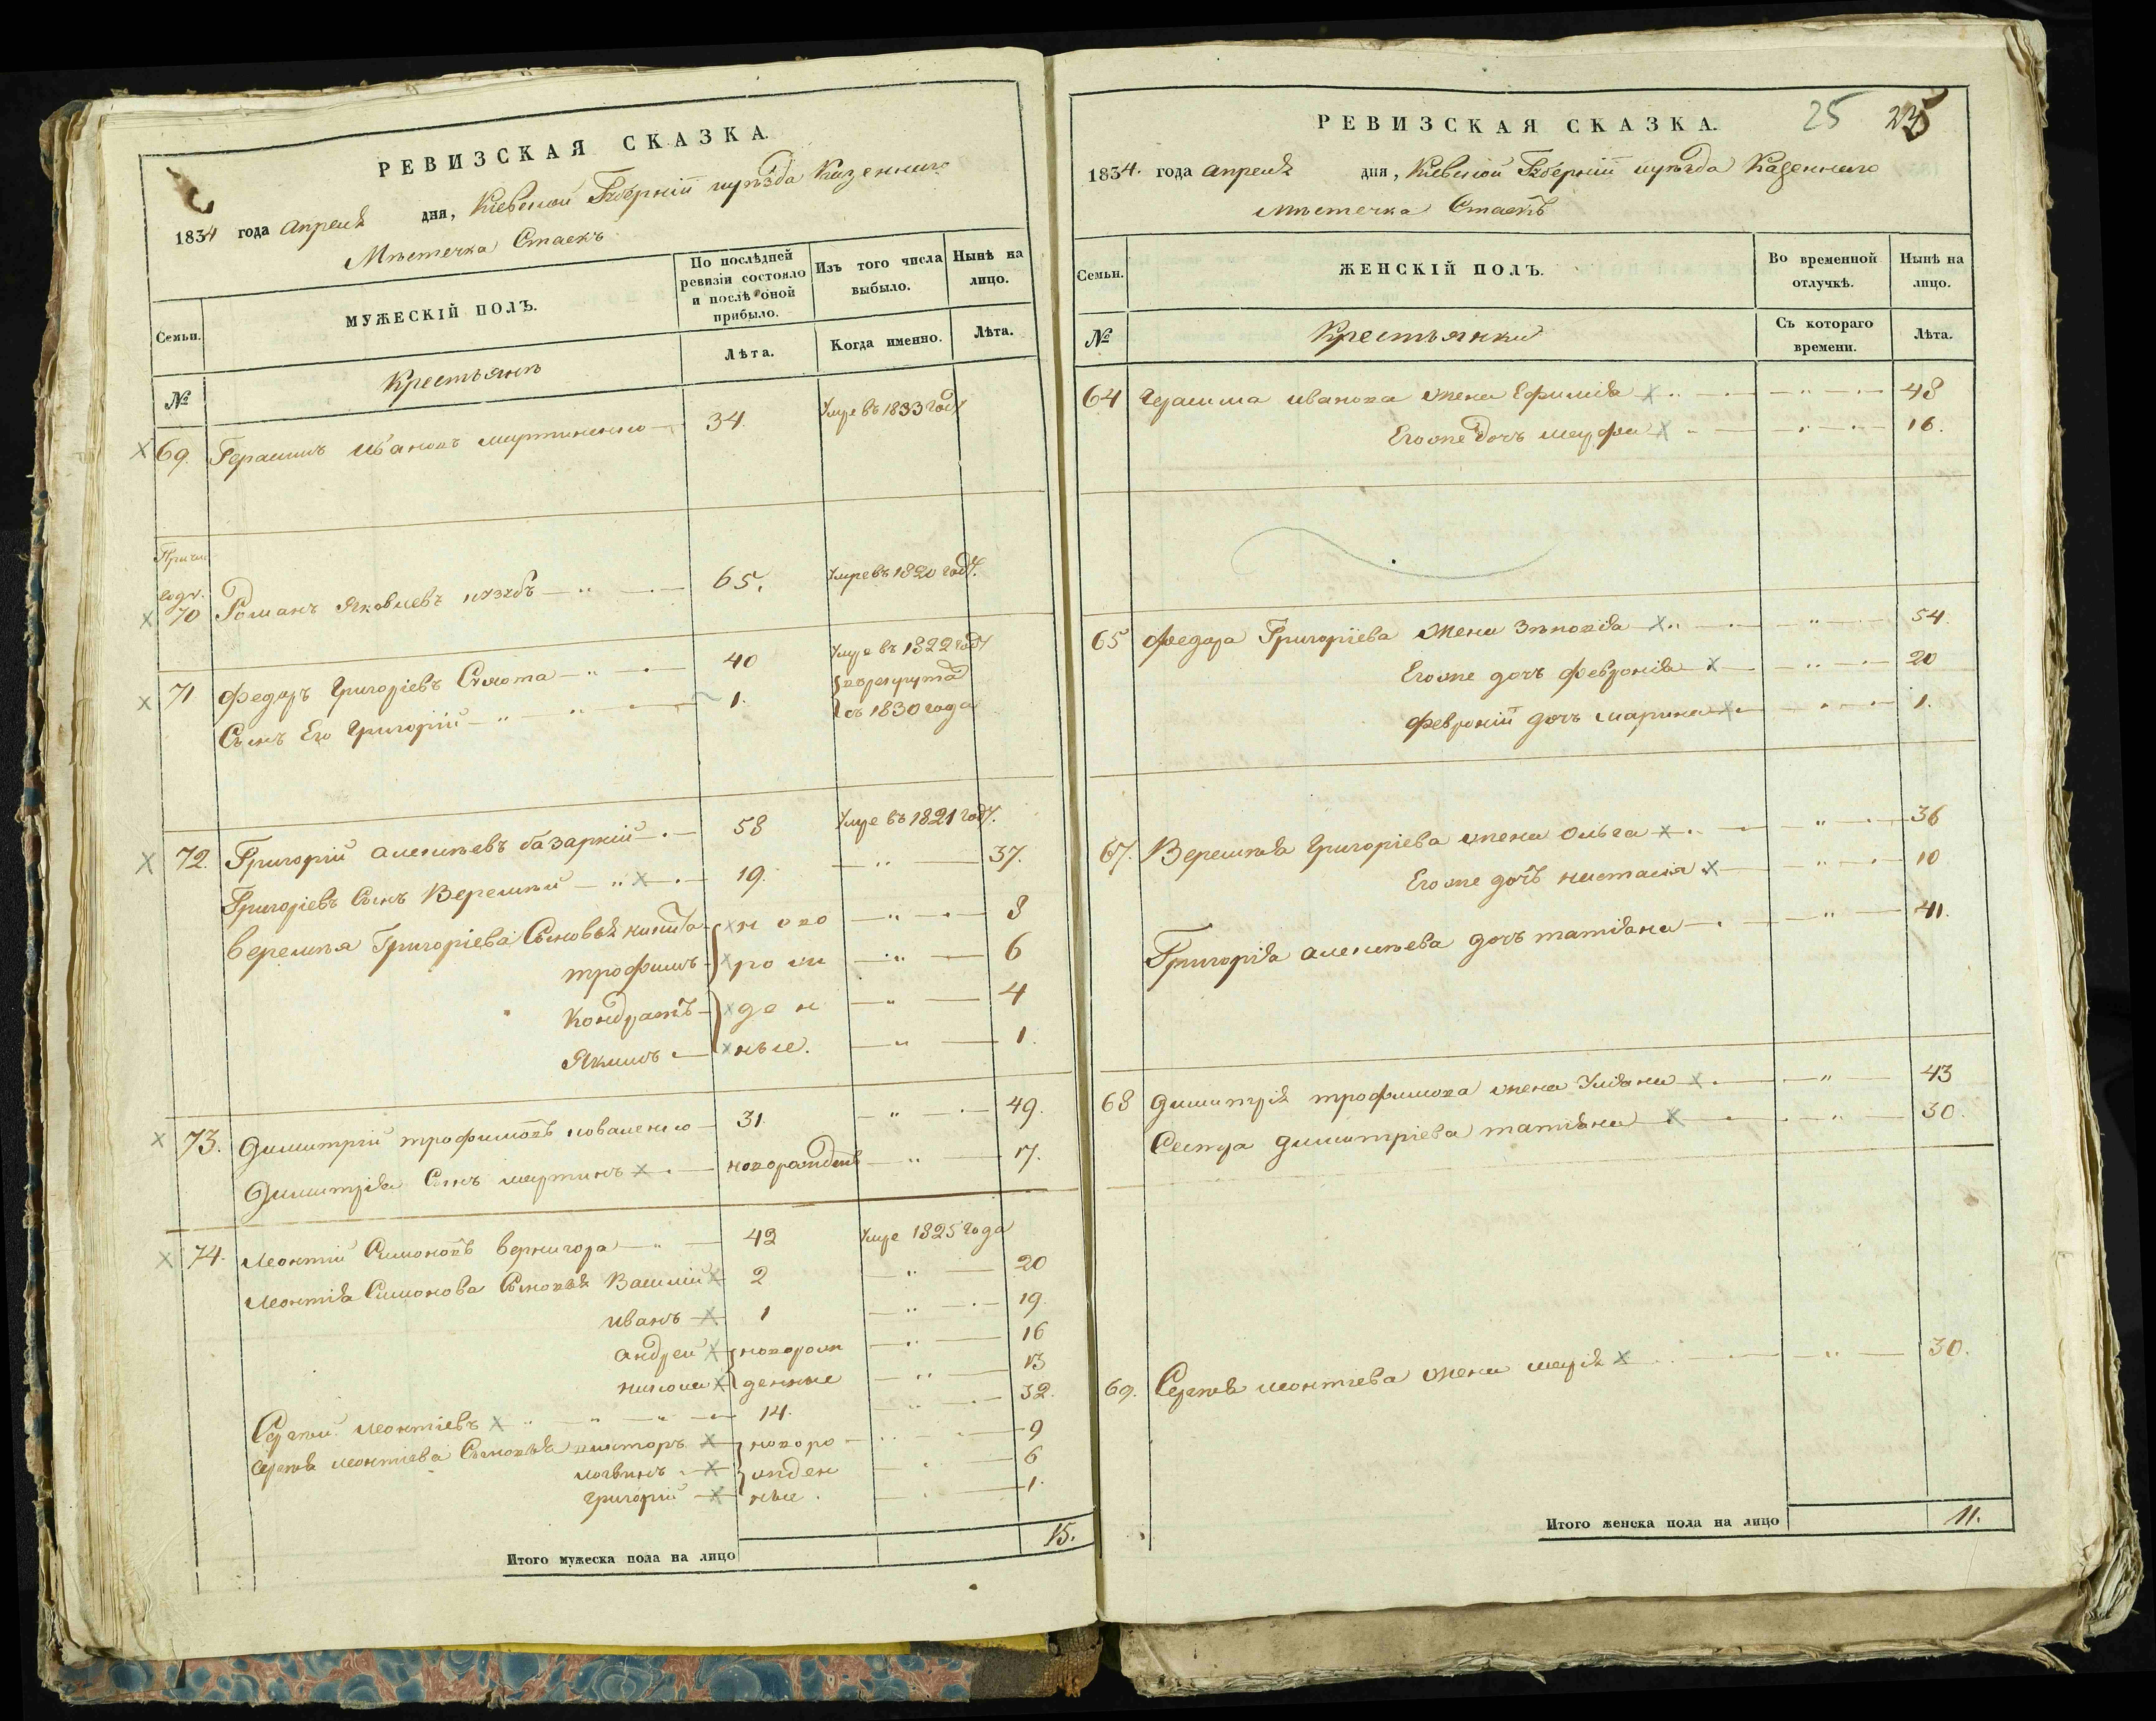 РЕВИЗСКАЯ СКАЗКА
1834 года апреля дня, Кіевской Губерніи уѣзда Казеннаго
Мѣстечка Стаекъ
Семьи.
МУЖЕСКІЙ ПОЛЪ.
По послѣдней ревизіи состояло и послѣ оной прибыло.
Изъ того числа выбыло.
Нынѣ на лицо.
№
Крестьянѣ
Лѣта.
Когда именно.
Лѣта.
69. Герасимъ Ивановъ Мартиненко 34. Умре въ 1833 году
70 Романъ Яковлевъ 65. Умре въ 1820 году.
71 Федоръ Григоріевъ 40 Умре въ 1822 году
Сынъ Его Григорій 1. въ рекруты съ 1830 года
72. Григорій Алексѣевъ базаркій 58 Умре въ 1821 году.
Григоріевъ Сынъ Веремѣй 19. 37.
Веремѣя Григоріева Сыновья никита ново 8
трофимъ рож 6
Кондратъ ден 4
Якимъ ные. 1.
73. Димитрій трофимовъ коваленко 31. 49.
Димитрія Сынъ мартинъ новорожденъ 17.
74. Леонтій Симоновъ вернигора 42 Умре 1825 года
Леонтія Симонова Сыновья Василій 2 20
иванъ 1 19.
андрей новорож 16
никола денные 13
Сергѣй Леонтіевъ 14. 32.
Сергѣя леонтіева Сыновья несторъ новоро 9
логвинъ жден 6
григорій ные. 1.
Итого мужеска пола на лицо 15.
25 25
РЕВИЗСКАЯ СКАЗКА.
1834. года апреля дня, Кіевской Губерніи уѣзда Казеннаго
Мѣстечка Стаекъ
Семьи.
ЖЕНСКІЙ ПОЛЪ.
Во временной отлучкѣ.
Нынѣ на лицо.
№
Крестьянки
Съ котораго времени.
Лѣта.
64 Герасима иванова жена Ефимія 48
Егоже дочь марфа 16.
65 Федора Григоріева жена Зѣновія 54.
Егоже дочъ февронія 20
февроніи дочъ марина 1.
67. Веремѣя Григоріева жена ольга 36
Егоже дочъ настасія 10
Григорія алексѣева дочъ татіана 41.
68 димитрія трофимова жена Уліана 43
Сестра димитріева татіана 30.
69. Сергѣя леонтіева жена марія 30.
Итого женска пола на лицо 11.